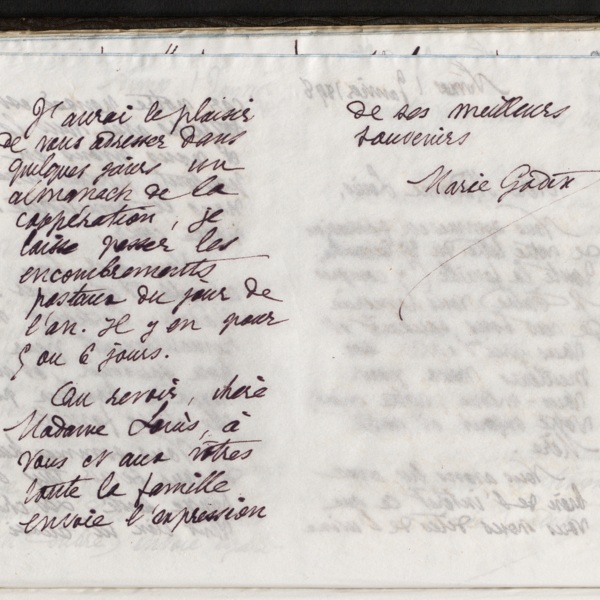 J'aurai le plaisir
de vous adresser dans
quelques jours un
almanach de la
coopération, je
laisse passer les
encombrements
postaux du jour de
l'an. Il y en pour
5 ou 6 jours.
Au revoir, chère
Madame Louis, à
vous et aux vôtres
toute la famille
envoie l'expression
de ses meilleurs
souvenirs
Marie Godin